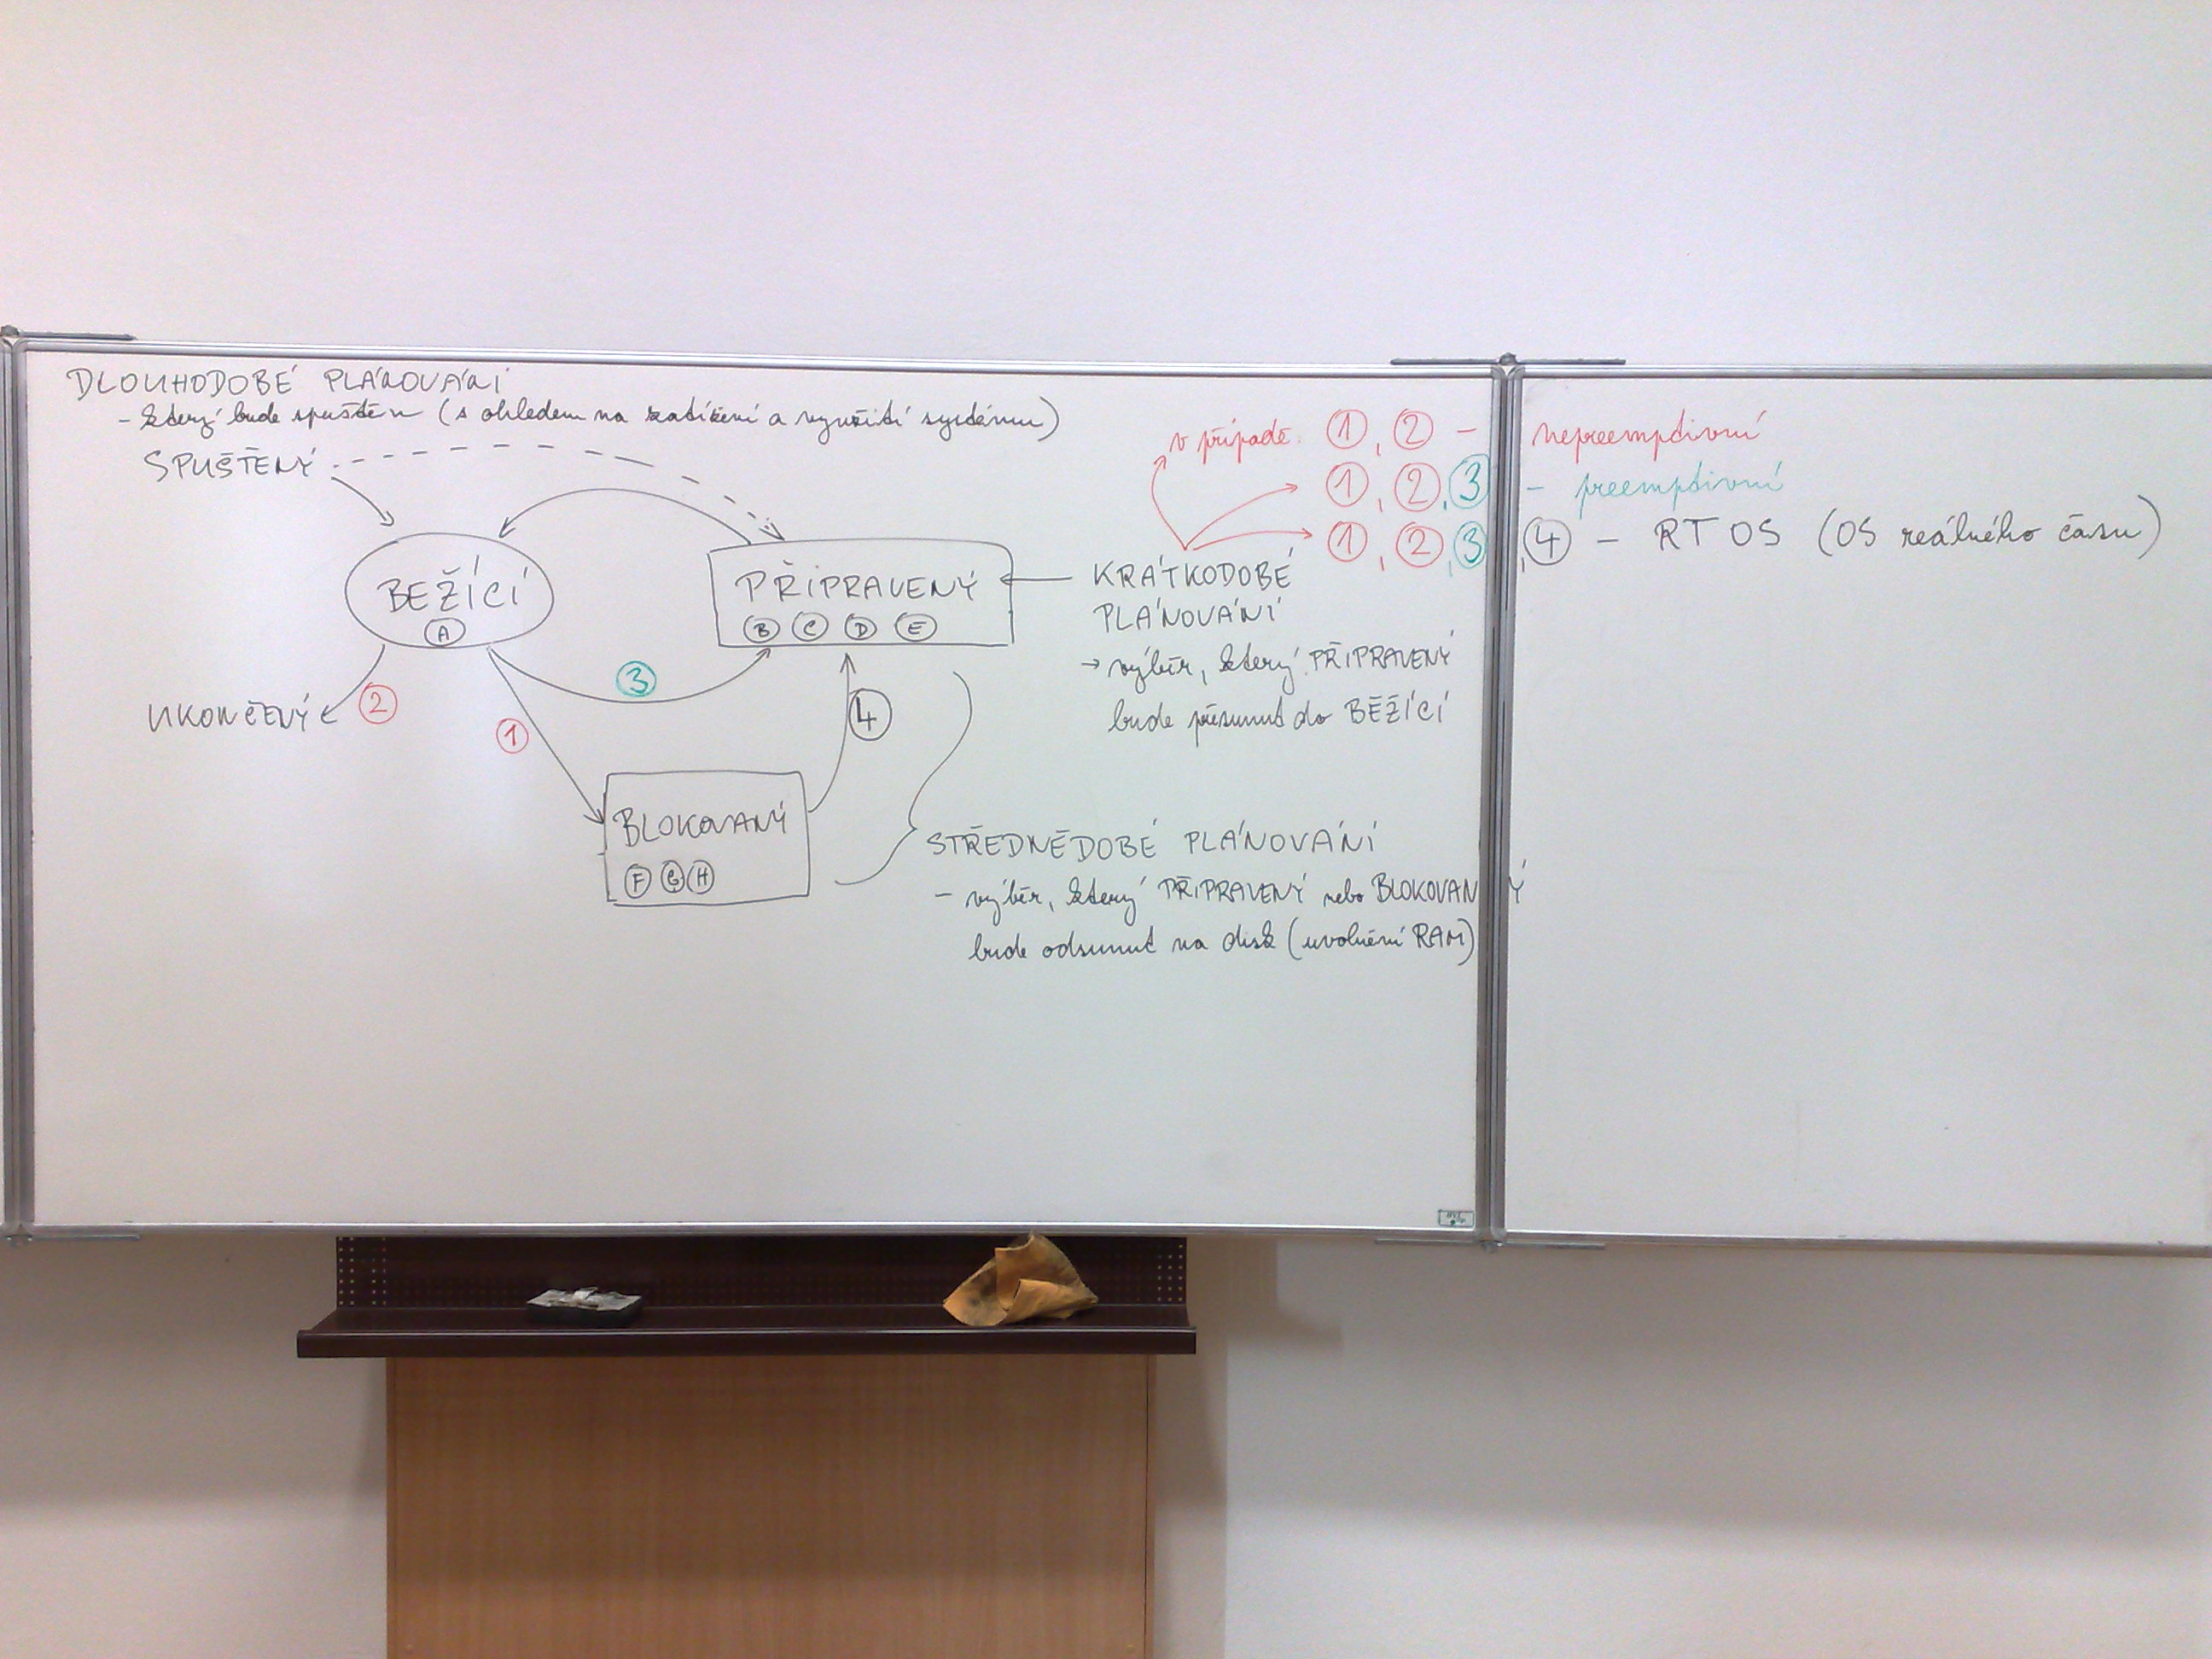 DLOUHODOBÉ PLÁNOVÁNÍ
- který bude spuštěn (s ohledem na zatížení a využití systému)
SPUŠTĚNÝ
v případě: 1, 2 - nepreemptivní
1, 2, 3 - preemptivní
1, 2, 3, 4 - RT OS (OS reálného času)
BEŽÍCÍ
A
PŘIPRAVENÝ
B C D E
KRÁTKODOBÉ
PLÁNOVÁNÍ
→ výběr, který PŘIPRAVENÝ
bude přesunut do BĚŽÍCÍ
UKONČENÝ
2
1
3
4
BLOKOVANÝ
F G H
STŘEDNĚDOBÉ PLÁNOVÁNÍ
- výběr, který PŘIPRAVENÝ nebo BLOKOVANÝ
bude odsunut na disk (uvolnění RAM)